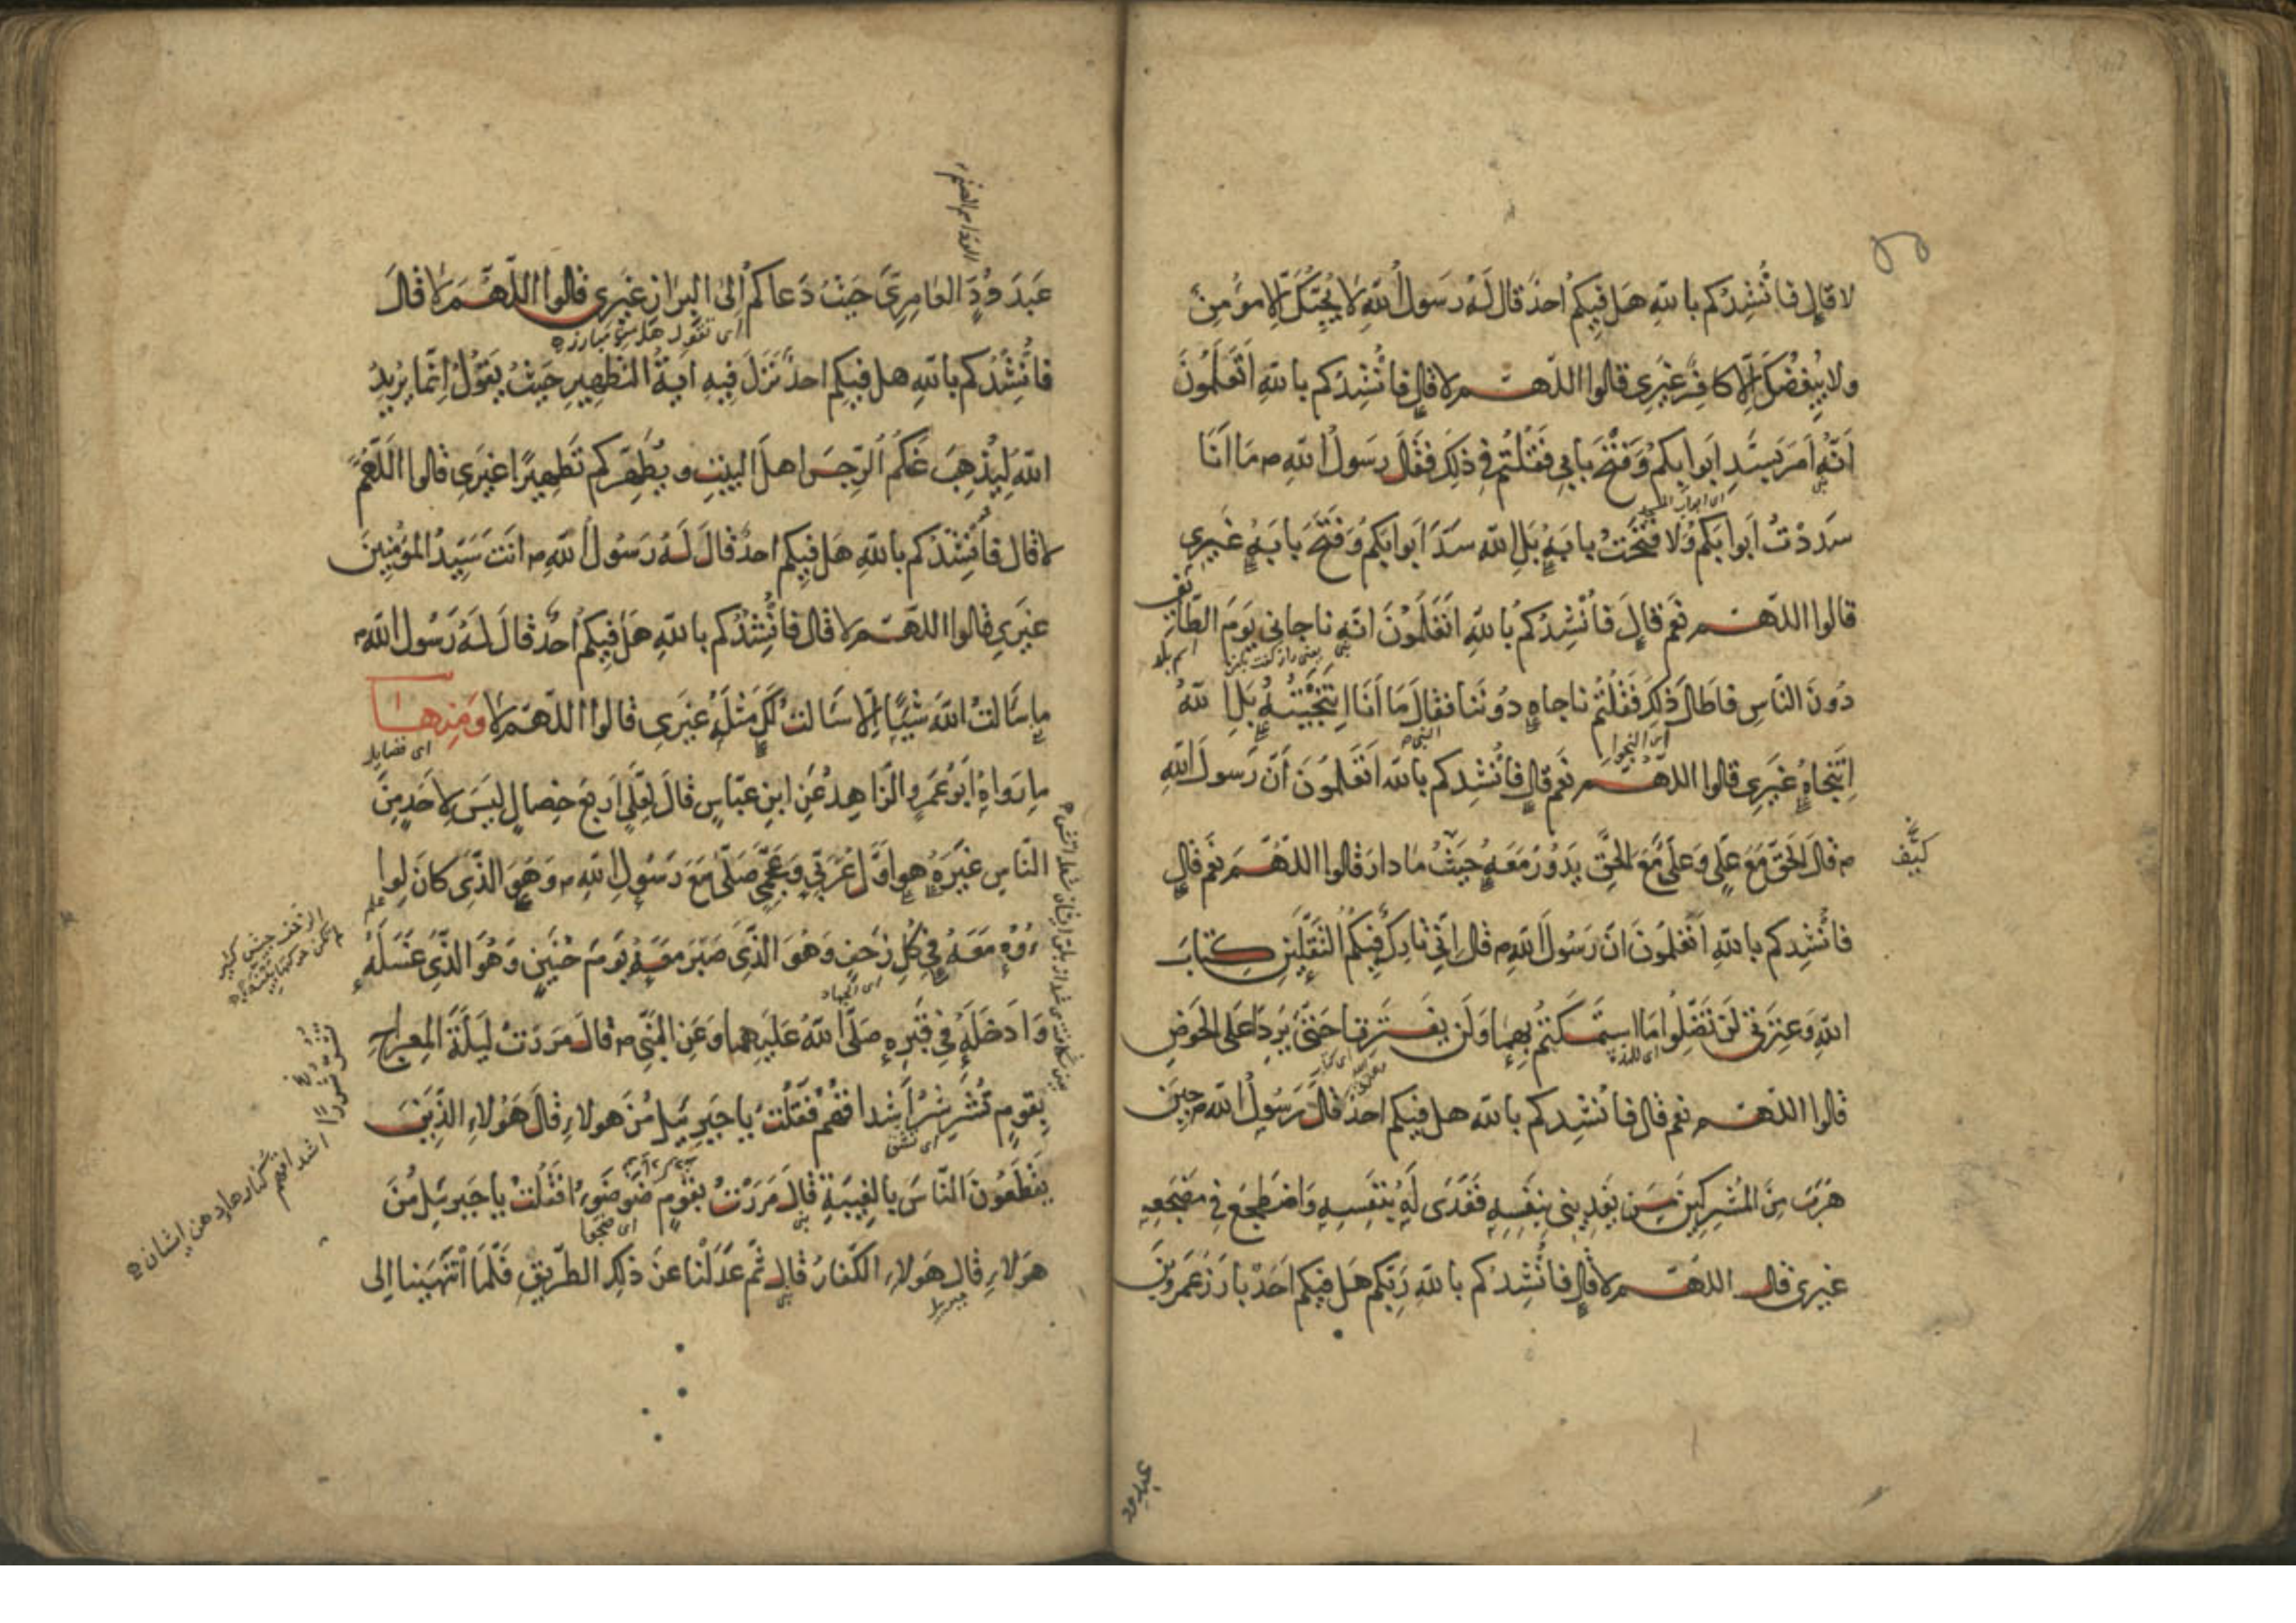 لا قال فانشدكم بالله هل فيكم احد قال له رسول الله لا يحبك الا مؤمن
ولا يبغضك الا كافر غيرى قالوا اللهم لا قال فانشدكم بالله اتعلمون
انه امر بسد ابوابكم وفتح بابى فقلتم فى ذلك فقال رسول الله م ما انا
اى ابواب المسجد
سددت ابوابكم ولا فتحت بابه بل الله سد ابوابكم وفتح بابه غيرى
قالوا اللهم نعم قال فانشدكم بالله اتعلمون انه ناجانى يوم الطائف
دون الناس فاطال ذلك فقلتم ناجاه دوننا فقال ما انا انتجيته بل الله
انتجاه غيرى قالوا اللهم نعم قال فانشدكم بالله اتعلمون ان رسول الله
م قال الحق مع على وعلى مع الحق يدور معه حيث ما دار قالوا اللهم نعم قال
فانشدكم بالله اتعلمون ان رسول الله م قال انى تارك فيكم الثقلين كتاب
الله وعترتى لن تضلوا ما استمسكتم بهما ولن يفترقا حتى يردا على الحوض
قالوا اللهم نعم قال فانشدكم بالله هل فيكم احد قال رسول الله م حين
هرب من المشركين من يفدينى بنفسه ففدى له بنفسه واضطجع فى مضجعه
غيرى قال اللهم لا قال فانشدكم بالله ربكم هل فيكم احد بارز عمرو بن
عبد ود
عبد ود العامرى حيث دعاكم الى البراز غيرى قالوا اللهم لا قال
اى تقول هل من مبارز
فانشدكم بالله هل فيكم احد نزل فيه اية التطهير حيث يقول انما يريد
الله ليذهب عنكم الرجس اهل البيت ويطهركم تطهيرا غيرى قالوا اللهم
لا قال فانشدكم بالله هل فيكم احد قال له رسول الله م انت سيد المؤمنين
غيرى قالوا اللهم لا قال فانشدكم بالله هل فيكم احد قال له رسول الله م
ما سالت الله شيئا الا سالت لك مثله غيرى قالوا اللهم لا ومنها
اى فضايل
ما رواه ابو عمرو الزاهد عن ابن عباس قال لعلى اربع خصال ليس لاحد من
الناس غيره هو اول عربى وعجمى صلى مع رسول الله م وهو الذى كان لواؤه
معه فى كل زحف وهو الذى صبر معه يوم حنين وهو الذى غسله
اى الجهاد
وادخله فى قبره صلى الله عليهما وعن النبى م قال مررت ليلة المعراج
بقوم تشرشر اشداقهم فقلت يا جبرئيل من هولاء قال هولاء الذين
يقطعون الناس بالغيبة قال مررت بقوم ضوضوءا فقلت يا جبرئيل من
هولاء قال هولاء الكفار قال ثم عدلنا عن ذلك الطريق فلما انتهينا الى